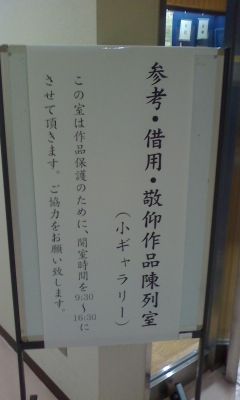 参考・借用・敬仰作品陳列室
(小ギャラリー)
この室は作品保護のために、開室時間を9:30～16:30に
させて頂きます。ご協力をお願い致します。